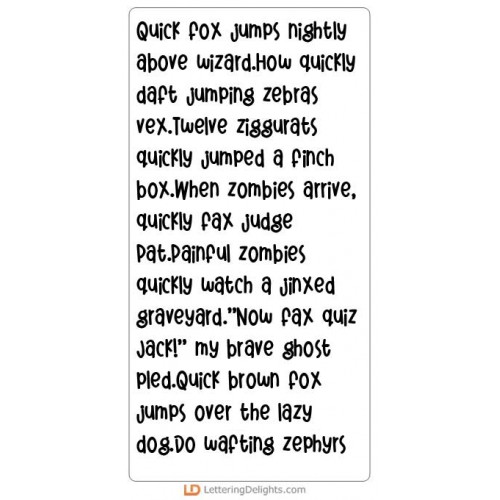 Quick fox jumps nightly
above wizard.How quickly
daft jumping zebras
vex.Twelve ziggurats
quickly jumped a finch
box.When zombies arrive,
quickly fax judge
Pat.Painful zombies
quickly watch a jinxed
graveyard."Now fax quiz
Jack!" my brave ghost
pled.Quick brown fox
jumps over the lazy
dog.Do wafting zephyrs
LD LetteringDelights.com